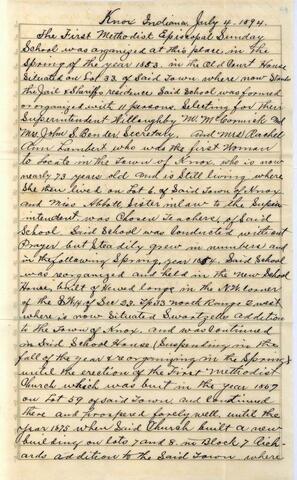 Knox Indiana, July 4-1894.
The First Methodist Episcopal Sunday
School was organized at this place, in the
Spring of the year 1853. in the Old Court House
Situated on Lot 33 of Said Town where now Stands
the Jail & Sheriffs residence Said School was formed
or organized with 11 persons. Selecting for their
Superintendent Willoughby M. McCormick and
Mrs John S. Bender, Secretary, and Mrs Rachell
Ann Lambert who was the first Woman
to Locate in the Town of Knox, who is now
nearly 73 years old and is Still living where
She then lived on Lot 6. of Said Town of Knox
and Miss Abbott Sister in law to the Super-
intendent was Chosen Teachers, of Said
School. Said School was Conducted without
Prayer but Steadily grew in numbers and
in the following Spring, year 1854. Said School
was reorganized and held in the New School
House, built of hewed longs in the N.W. corner
of the of Sec 23. Tp 33 north Range 2. west
where is now Situated Swartzells addition
to the Town of Knox. and was Continued
in Said School House (Suspending in the
fall of the year & reorganizing in the Spring)
until the erection of the First Methodist
Church which was buit in the year 1867
on Lot 59 of Said Town and Continued
there and prospered farely well, until the
year 1875 when Said Church built a new
building on Lots 7 and 8. in Block 7 Rich-
ards addition to the Said Town where